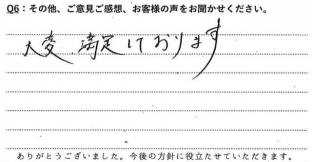 Q6：その他、ご意見ご感想、お客様の声をお聞かせください。
大変、満足しております
ありがとうございました。今後の方針に役立たせていただきます。